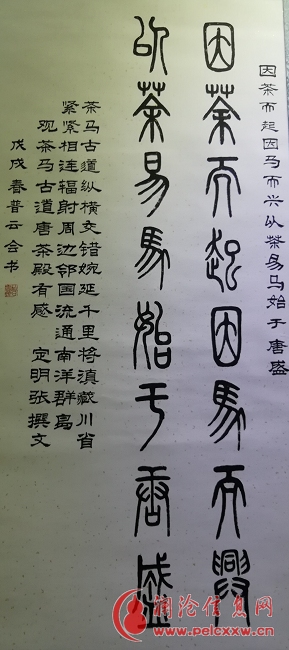 因茶而起因马而兴以茶易马始于唐盛
因茶而起因馬而興
以茶易馬始于唐盛
茶马古道纵横交错婉延千里将滇藏川省
紧紧相连辐射周边邻国流通南洋群岛
观茶马古道唐茶殿有感 定明张撰文
戊戌春普云会书
澜沧信息网
www.pelcxxw.cn